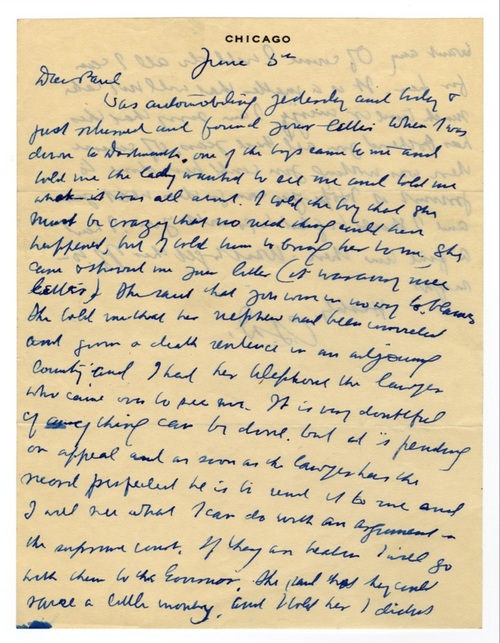 CHICAGO
June 5th
Dear Paul
Was automobiling yesterday and today &
just returned and found your letter. When I was
down to Dartmouth, one of the boys came to me and
told me the lady wanted to see me and told me
what it was all about. I told the boy that she
must be crazy that no such thing could have
happened, but I told him to bring her to me. She
came & showed me your letter (it was a very nice
letter). She said that you were in no way to blame
She told me that her nephew had been convicted
and given a death sentence in an adjoining
County and I had her telephone the lawyer
who came over to see me. It is very doubtful
if anything can be done. but it is pending
on appeal and as soon as the lawyer has the
record perfected he is to send it to me and
I will see what I can do with an argument in
the supreme court. If they are beaten I will go
with them to the Governor. She said that they could
raise a little money, and I told her I didnt